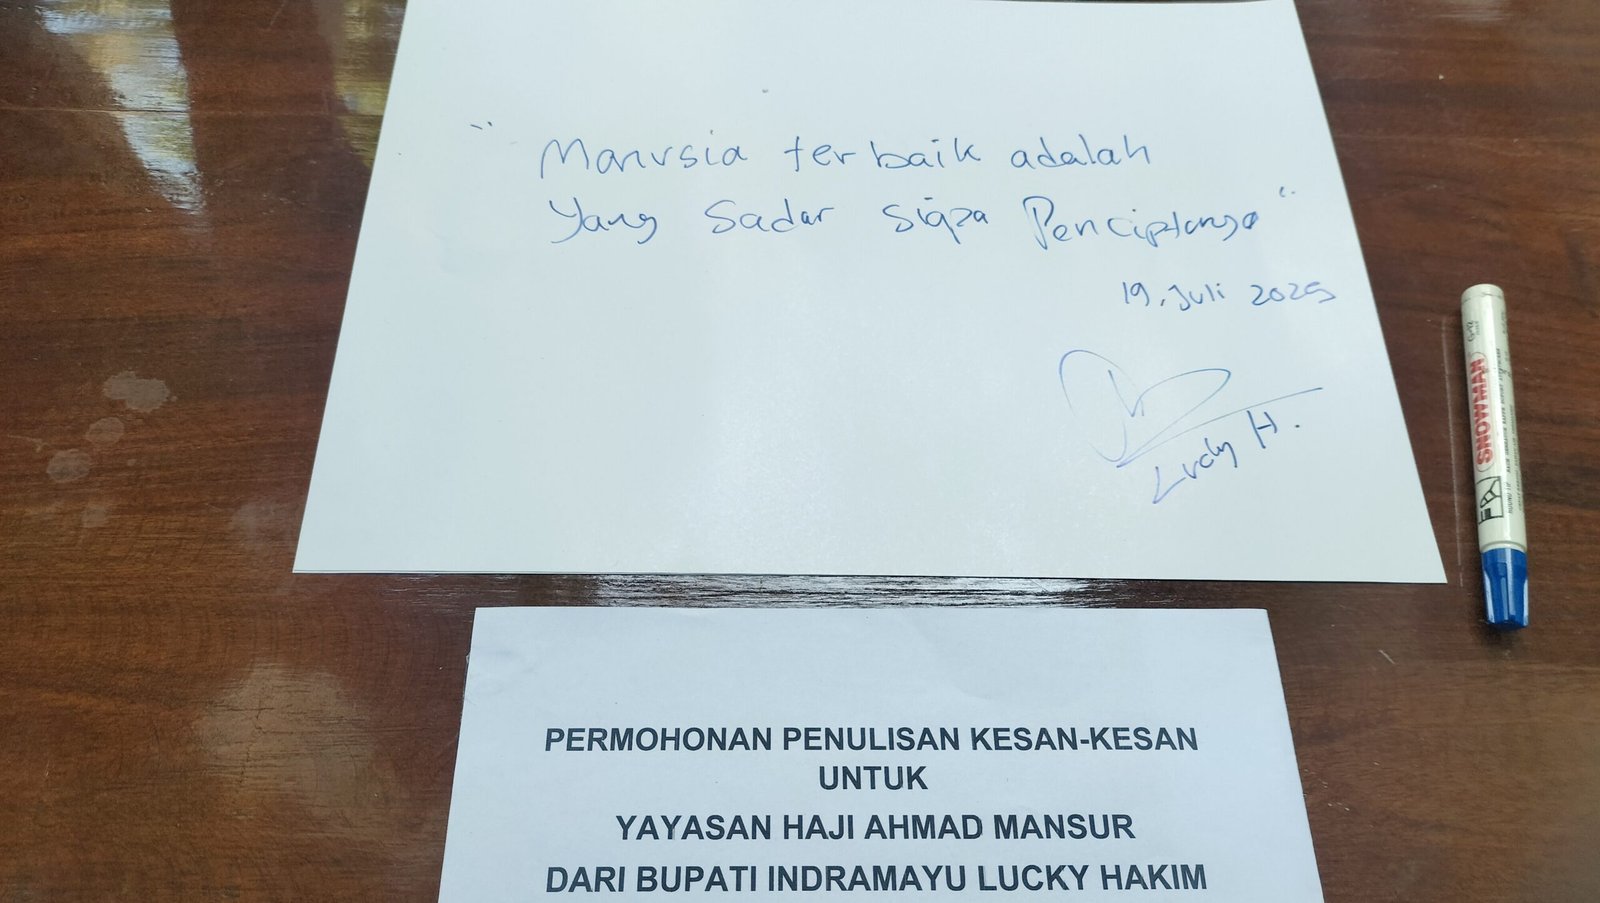 " Manusia terbaik adalah
Yang Sadar siapa Penciptanya "
19, Juli 2025
Lucky H.
SNOWMAN
G-12
PERMOHONAN PENULISAN KESAN-KESAN
UNTUK
YAYASAN HAJI AHMAD MANSUR
DARI BUPATI INDRAMAYU LUCKY HAKIM